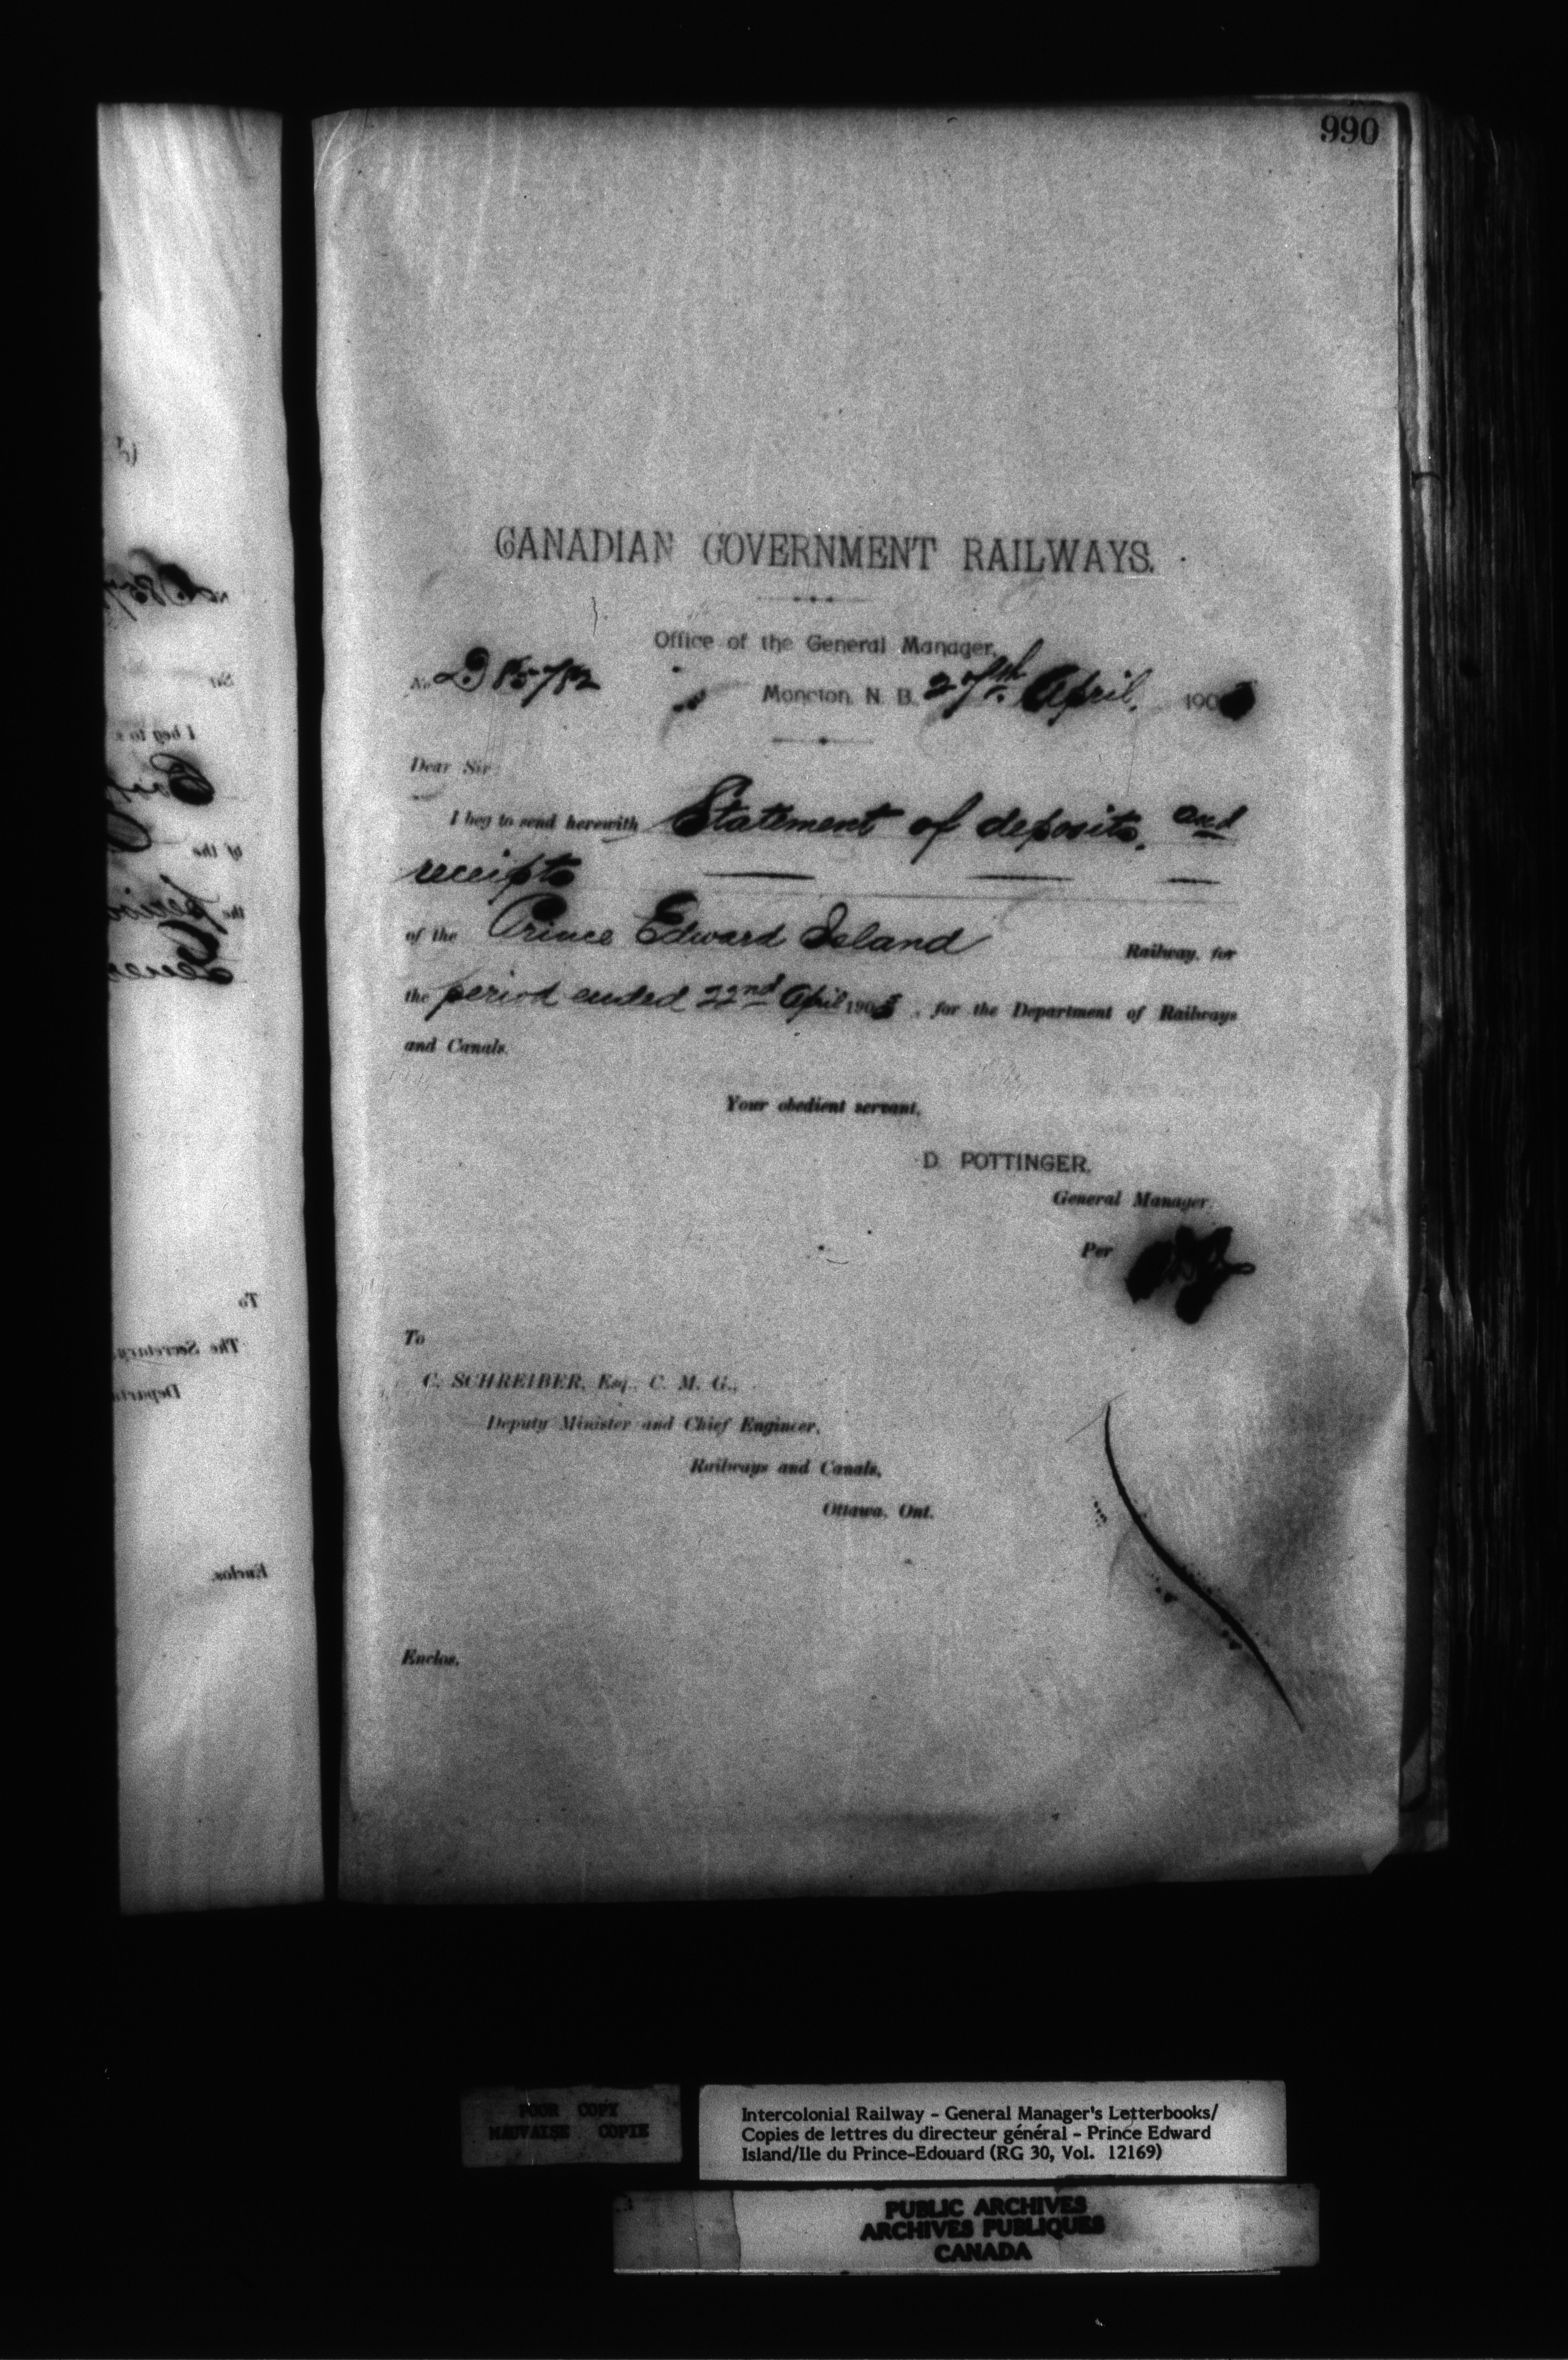 990
CANADIAN GOVERNMENT RAILWAYS.
Office of the General Manager,
No. D 85782
Moncton, N. B. 27th April, 190
Dear Sir:
I beg to send herewith Statement of deposits, and
receipts
of the Prince Edward Island Railway, for
the period ended 22nd April 190 , for the Department of Railways
and Canals.
Your obedient servant,
D. POTTINGER,
General Manager.
Per
To
C. SCHREIBER, Esq., C. M. G.,
Deputy Minister and Chief Engineer,
Railways and Canals,
Ottawa, Ont.
Enclos.
POOR COPY
MAUVAISE COPIE
Intercolonial Railway - General Manager's Letterbooks/
Copies de lettres du directeur général - Prince Edward
Island/Ile du Prince-Edouard (RG 30, Vol. 12169)
PUBLIC ARCHIVES
ARCHIVES PUBLIQUES
CANADA